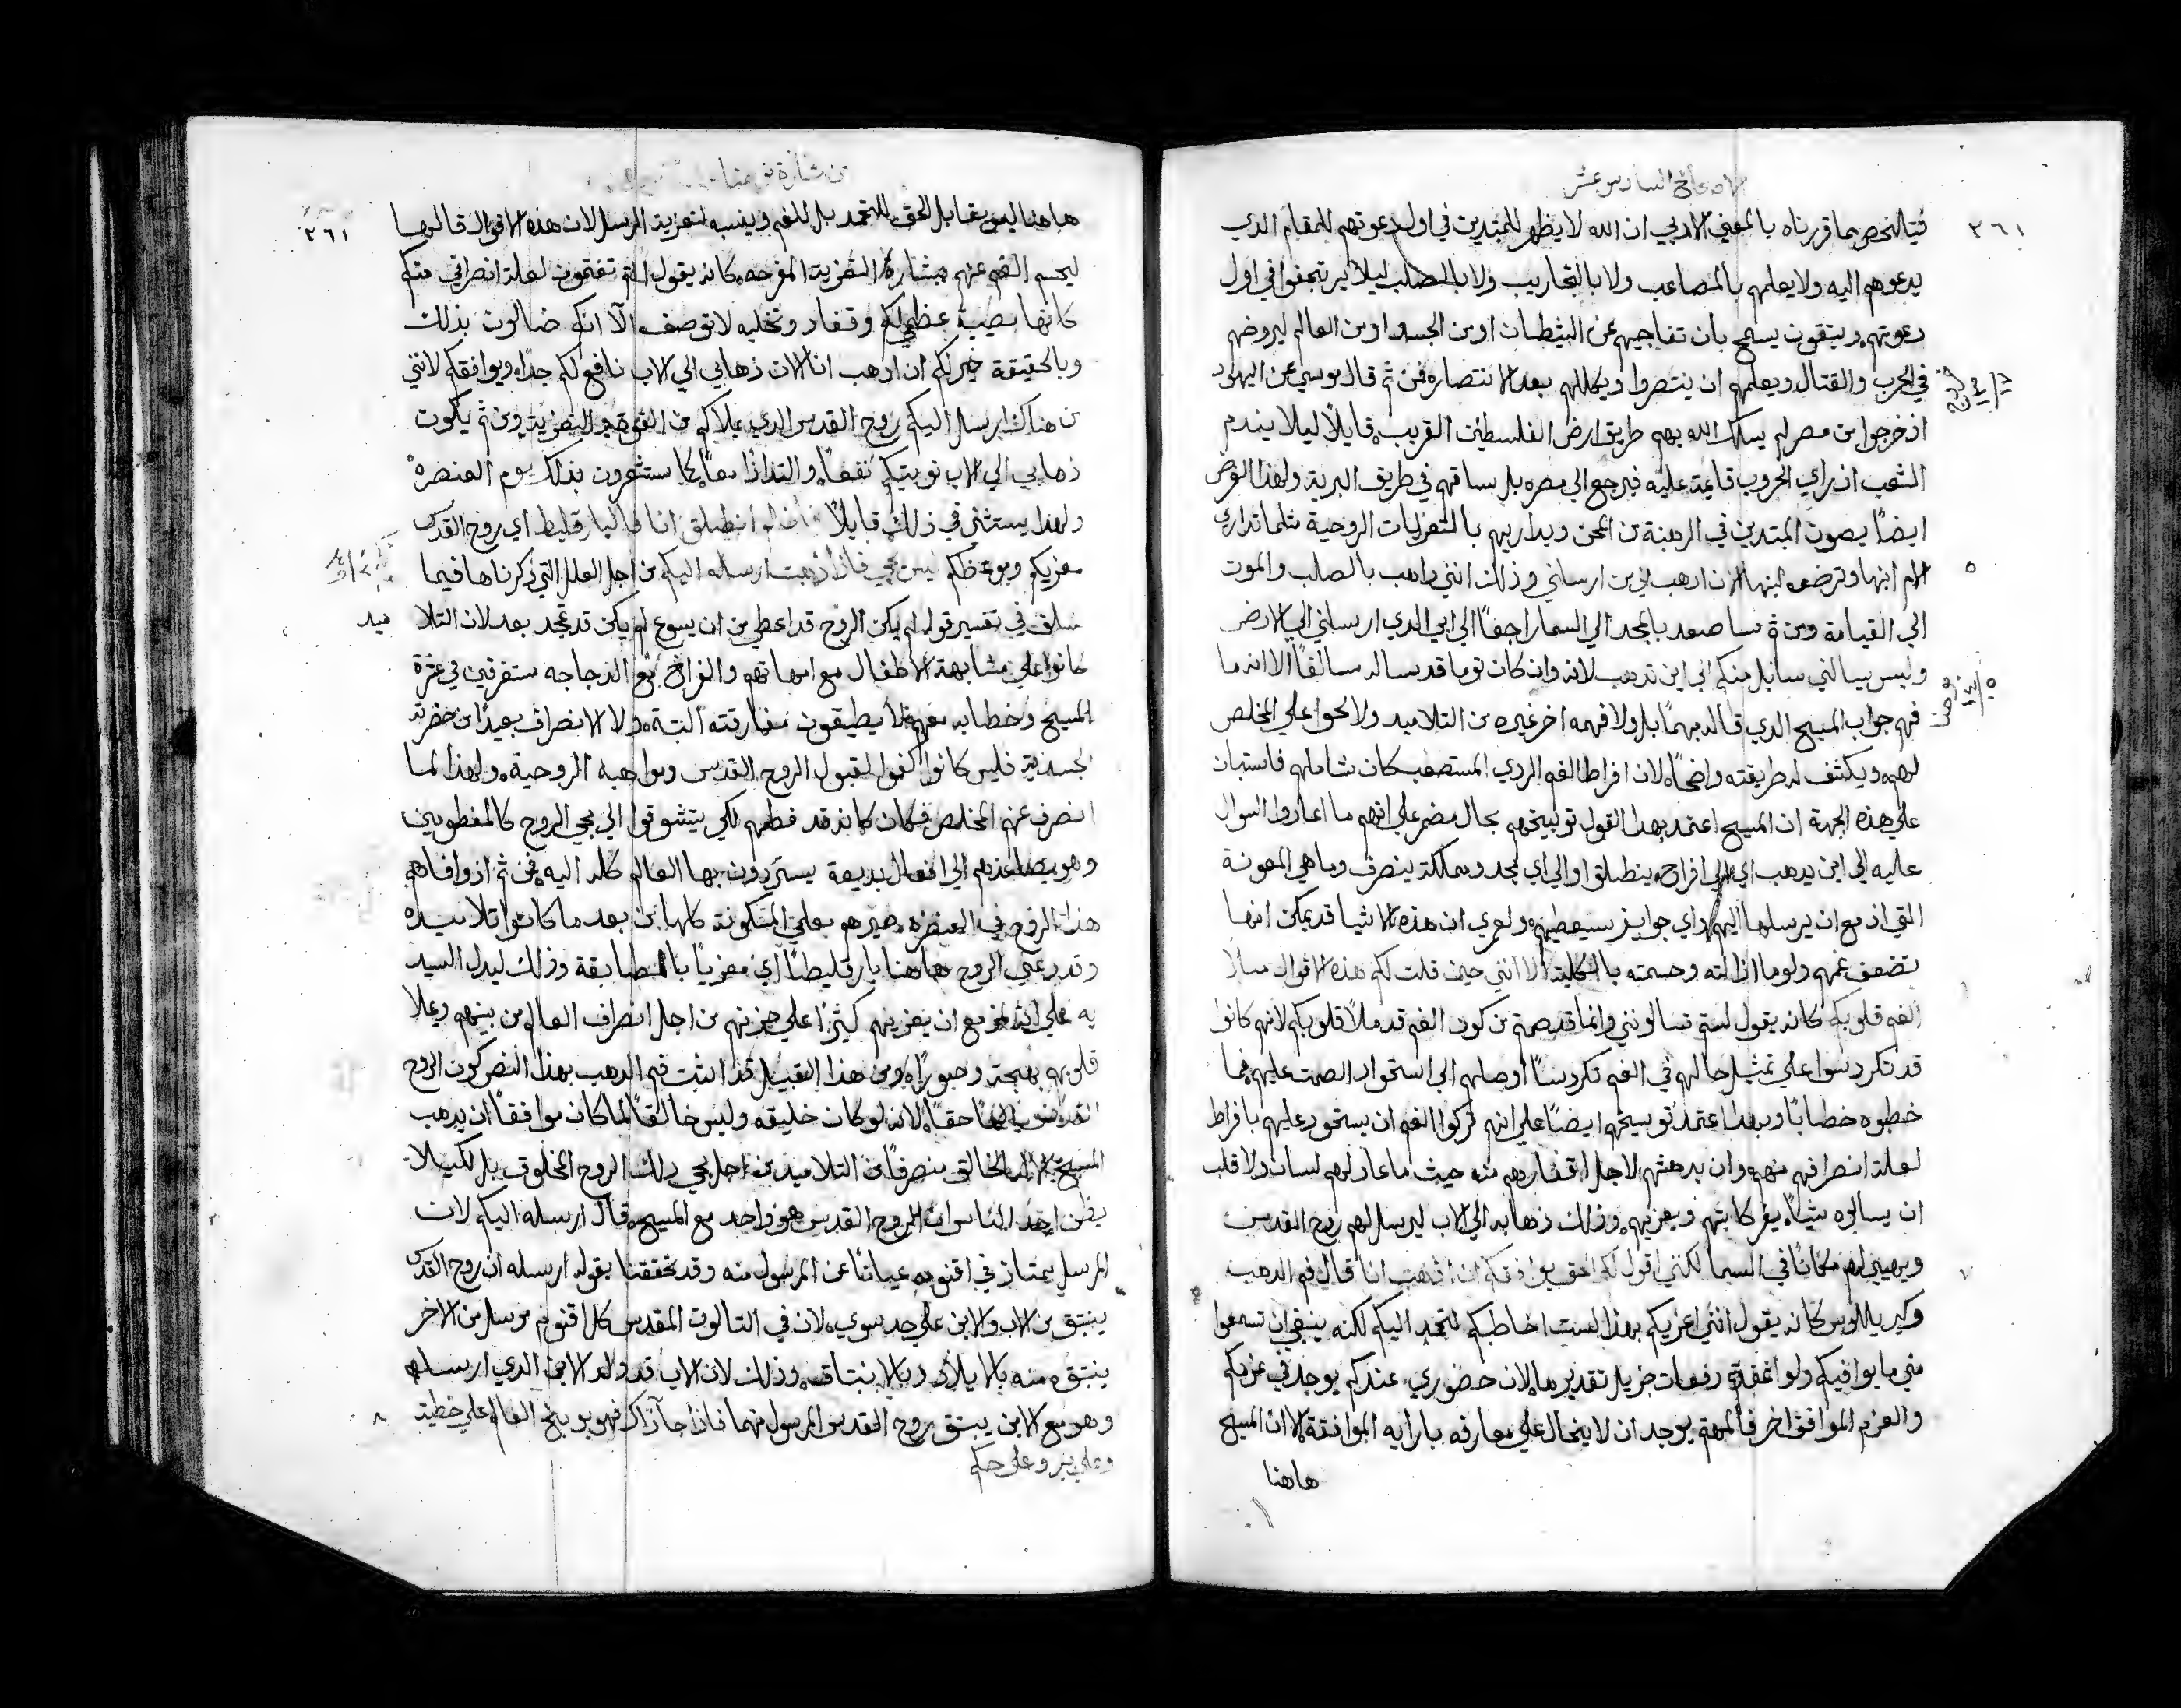 الاصحاح السادس عشر
٣٦١
فيتالخص مما قررناه بالمعني الادبي ان الله لا يظهر للمبتدين في اول دعوتهم للمقام الدي
يدعوهم اليه ولا يعلمهم بالمصاعب ولا بالتجاريب ولا بالصلب ليلا يرتجفوا في اول
دعوتهم ويتقون يسمح بان تفاجيهم من الشيطان او من الجسد او من العالم ليروضهم
في الحرب والقتال ويعلمهم ان ينتصروا ويكللهم بعد الانتصار فمن ثم قال موسي عن اليهود
اذ خرجوا من مصر لم يسلك الله بهم طريق ارض الفلسطين القريب قايلًا ليلا يندم
الشعب ان راي الحروب قايمة عليه فيرجع الي مصر بل ساقهم في طريق البرية ولهذا الغرض
ايضًا يصون المبتدين في الرهبنة من المحن ويداريهم بالتعزيات الروحية مثلما تداري
٥
الام ابنها وترضعه لبنها الان اذهب الي من ارسلني وذلك انني ذاهب بالصلب والموت
الي القيامة ومن ثم ساصعد بالمجد الي السما راجعًا الي ابي الدي ارسلني الي الارض
وليس يسالني سايل منكم الي اين تذهب لانه وان كان توما قد ساله سالفًا الا انه ما
فهم جواب المسيح الدي قاله مبهمًا بل ولا فهمه اخر غيره من التلاميد ولا لحوا علي المخلص
لهم ويكشف له طريقته واضحًا لان افراط الغم الردي المستصعب كان شاملهم فاستبان
علي هذه الجهة ان المسيح اعتمد بهدا القول توبيخهم بحال مضمر علي انهم ما اعادوا السوال
عليه الي اين يدهب اي الي افراح ينطلق او الي اي مجد ومملكة ينصرف وما هي المعونة
التي اذ مع ان يرسلها اليهم واي جوايز سيعطيهم ولعمري ان هذه الاشيا قد يمكن انها
تضعف غمهم ولو ما ازالته وحسمته بالكلية الا انني حين قلت لكم هذه الاقوال ملا
الغم قلوبكم كانه يقول لستم تسالونني وانما قد صمتم من كون الغم قد ملا قلوبكم لانهم كانوا
قد تكردسوا علي تمثيل حالهم في الغم تكردسًا اوصلهم الي استحواذ الصمت عليهم فما
خطبوه خطابًا وبهدا اعتمد توبيخهم ايضًا علي انهم تركوا الغم ان يستحود عليهم بافراط
لعلة انصرافهم منهم وان يدهشهم لاجل افتقارهم منه حيث ما عاد لهم لسان ولا قلب
ان يسالوه شيًا يفرّ كابتهم ويعزيهم وذلك ذهابه الي الاب ليرسل لهم روح القدس
ويهيي لهم مكانًا في السما لكنني اقول لكم الحق يوافقكم ان اذهب انا قال فم الدهب
وكيريللوس كانه يقول انني اعزيكم بهذا لست اخاطبكم للتحمد اليكم لكنه ينبغي ان تسمعوا
مني ما يوافيكم ولو اغمتم دفعات جزيل تقديرها لان حضوري عندكم يوجد في عزمكم
والعزم الموافق اخر فالمهتم يوجد ان لا يتحال علي معارفه باراية الموافقة الا ان المسيح
هاهنا
٣٦١
هاهنا ليس يقابل الحق للتحمد بل للغم وينسبه لتعزية الرسل لان هذه الاقوال قالها
ليحسم الغم عنهم ببشارة التعزية المفرحة كانه يقول انتم تغتمون لعلة انصرافي منكم
كانها مصيبة عظمي لكم وقفار وتخليه لا توصف الّا انكم ضالون بذلك
وبالحقيقة خير لكم ان اذهب انا لان ذهابي الي الاب نافع لكم جدًا ويوافقكم لانني
من هناك ارسل اليكم روح القدس الدي يملاكم من القوة والتعزية ومن ثم يكون
ذهابي الي الاب توبيتكم نفعًا والتذاذًا معًا كما ستشعرون بذلك يوم العنصرة
ولهذا يستثني في ذلك قايلًا فان لم انطلق انا فالبارقليط اي روح القدس
معزيكم وموعظكم ليس يجي فاذا ذهبت ارسله اليكم من اجل العلل التي ذكرناها فيما
سلف في تفسير قوله لم يكن الروح قد اعطي من ان يسوع لم يكن قد تمجد بعد لان التلا
ميد
كانوا علي مشابهة الاطفال مع امهاتهم والفراخ مع الدجاجه متفرقين في عشرة
المسيح وخطابه معهم فلا يطيقون مفارقته البتة ولا الانصراف بعيدًا من حضرته
الجسدية فليس كانوا كفوا لقبول الروح القدس ومواهبه الروحية ولهذا لما
انصرف عنهم المخلص فكان كانه قد فطمهم لكي يتشوقوا الي مجي الروح كالمفطومين
وهو يصاعدهم الي افعال بديعة يستردون بها العالم كله اليه فمن ثم اذ وافاهم
هذا الروح في العنصرة صيرهم معلمي المسكونة كلها من بعد ما كانوا تلاميده
وقد دعي الروح هاهنا بارقليطًا اي معزيًا بالمصابقة وذلك ليدل السيد
به علي انه مزمع ان يعزيهم كثيرًا علي حزنهم من اجل انصراف العالم من بينهم ويملا
قلوبهم بهجة وحبورًا ومن هذا القبيل قد اثبت فم الدهب بهذا النص كون الروح
القدس الهًا حقًا لانه لو كان خليقه وليس خالقًا لما كان موافقًا ان يدهب
المسيح الاله الخالق منصرفًا من التلاميد من اجل مجي ذلك الروح المخلوق بل لكيلا
يظن احد الناس ان الروح القدس هو واحد مع المسيح قال ارسله اليكم لان
المرسل يمتاز في اقنومه عيانًا عن المرسول منه وقد تحققنا بقوله ارسله ان روح القدس
ينبثق من الاب والابن علي حد سوي لان في التالوت المقدس كل اقنوم مرسل من الاخر
ينبثق منه بالايلاد وبالانبثاق وذلك لان الاب قد ولد الابن الدي ارسله
٨
وهو مع الابن يبثق روح القدس المرسول منهما فاذا جا ذاك فهو يوبخ العالم علي خطية
وعلي بر وعلي حكم